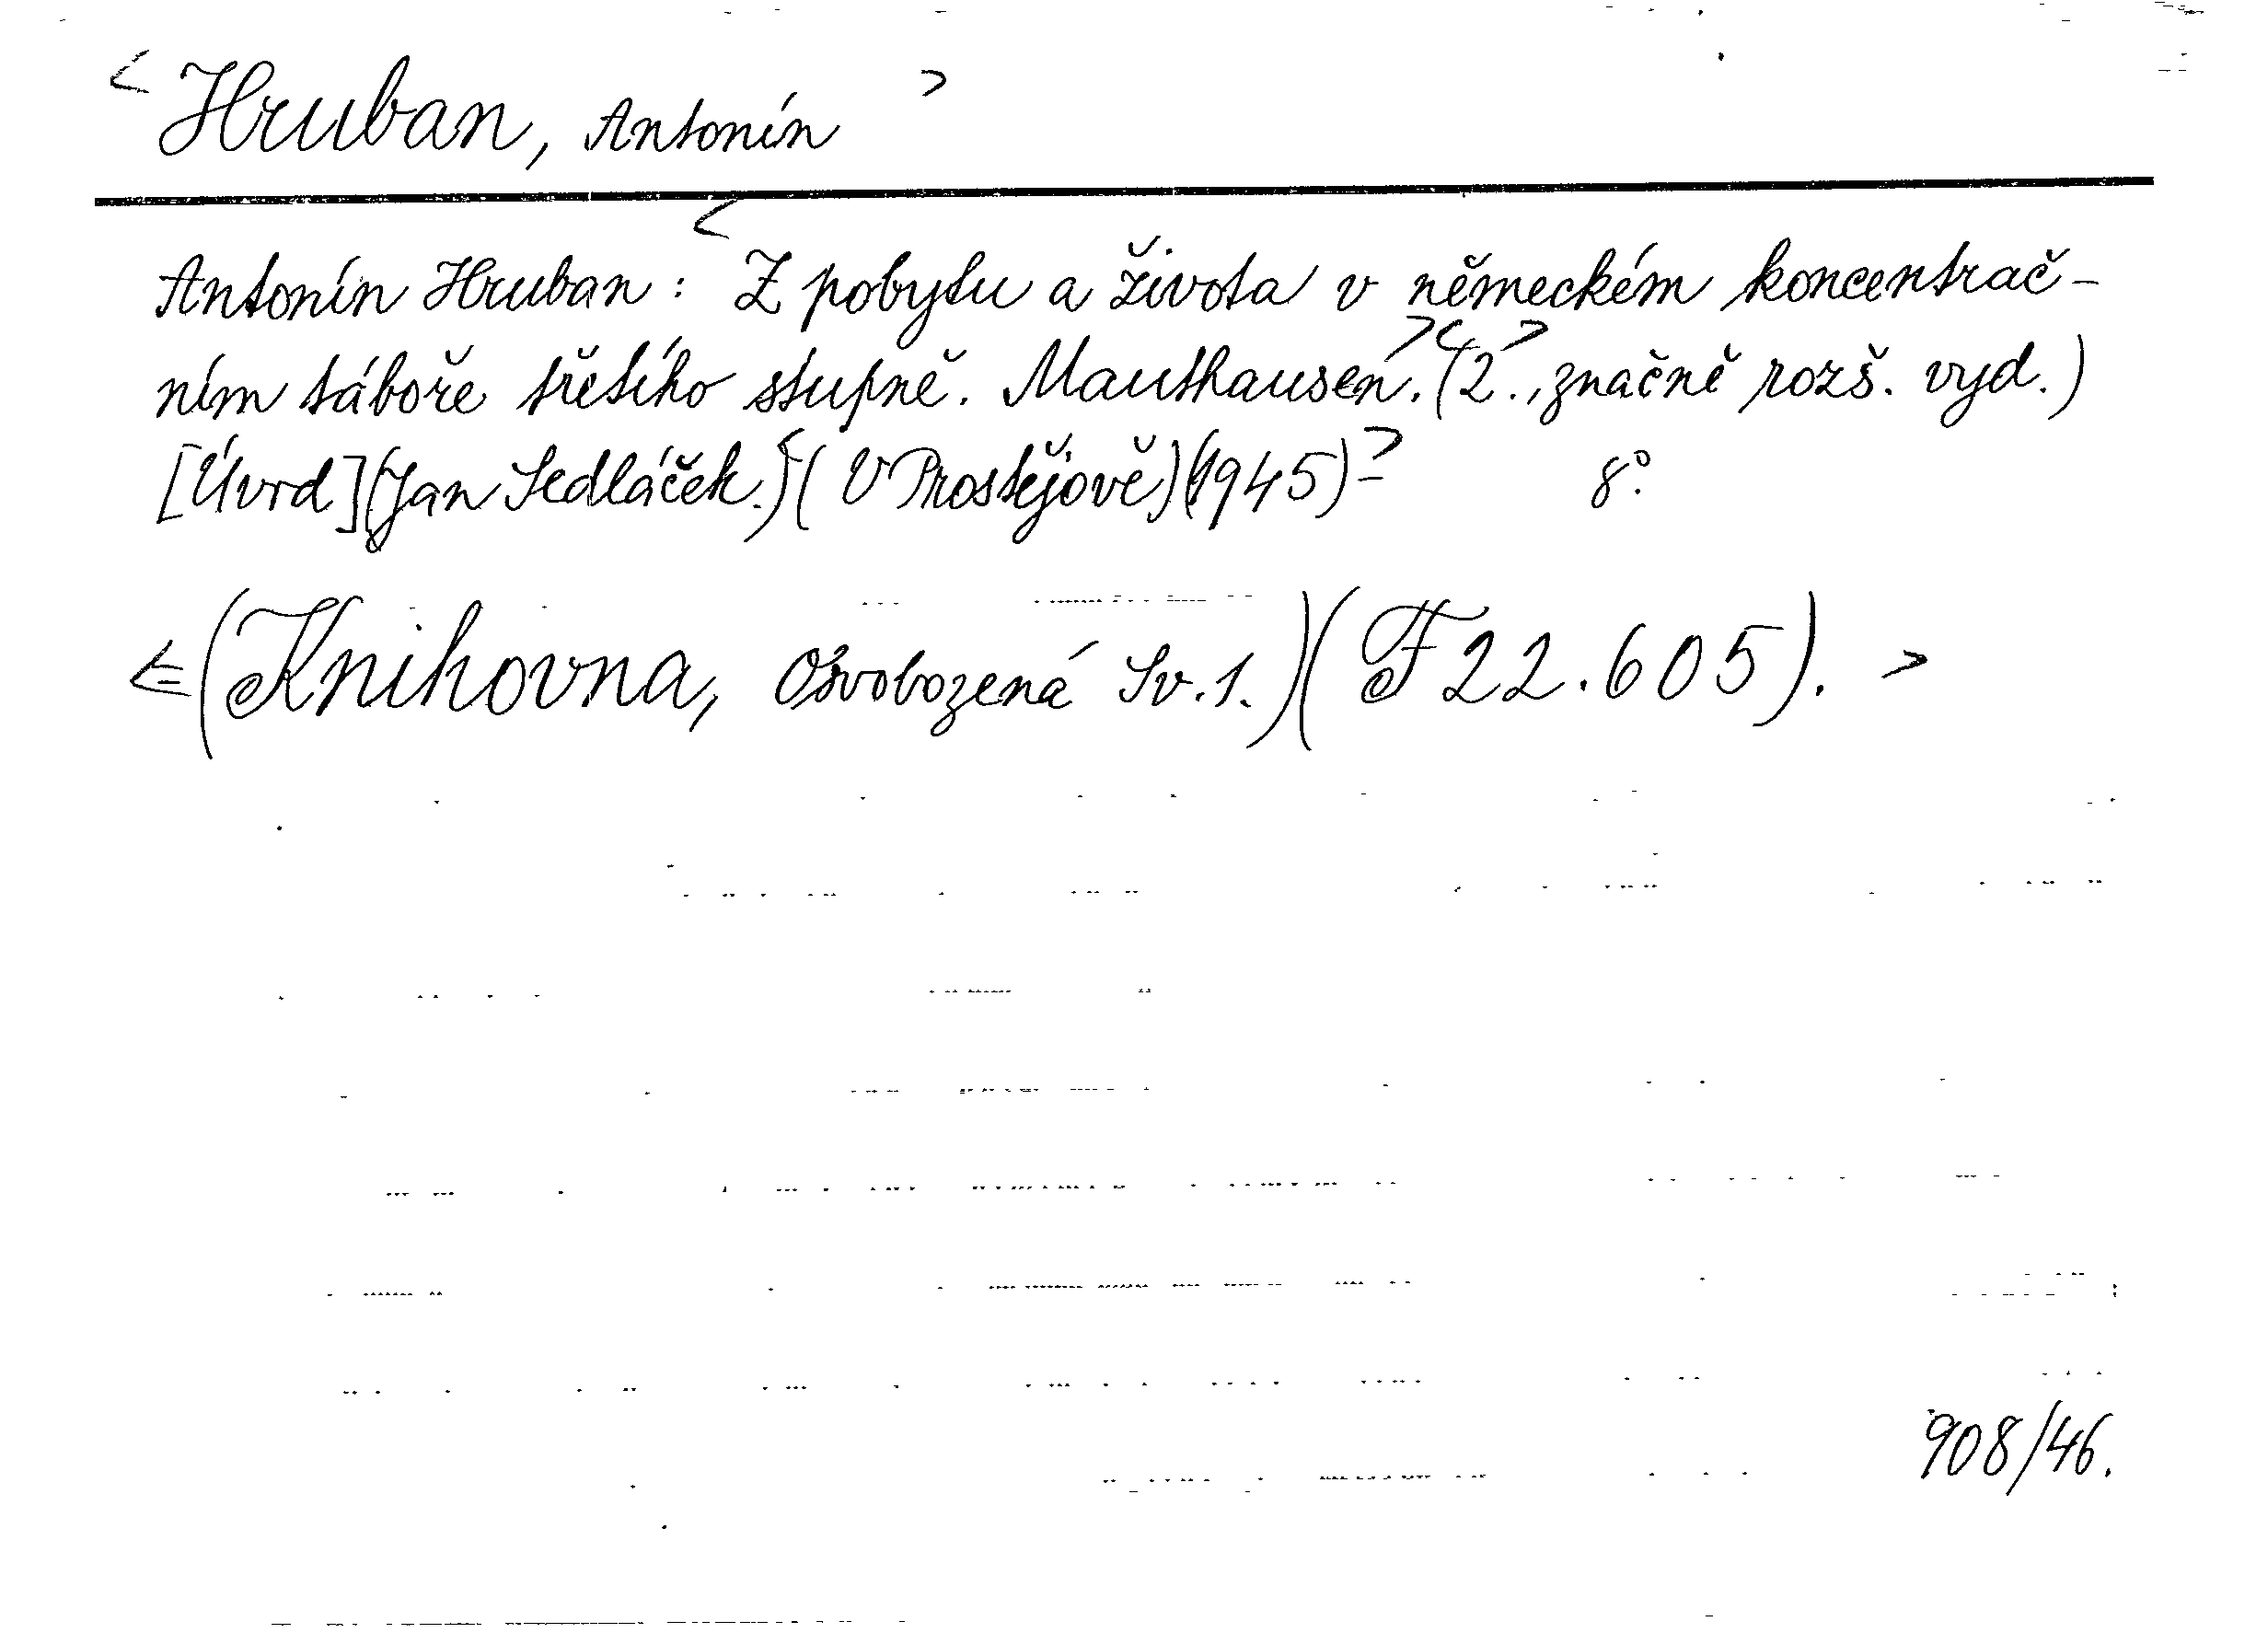 <Hruban, Antonín>
Antonín Hruban: <Z pobytu a života v německém koncentrač-
ním táboře třetího stupně. Mauthausen.> <(2.>, značně rozš. vyd.)
[Úvod] (Jan Sedláček.) <(V Prostějově) (1945)> 8°.
<(Knihovna, Osvobozená Sv. 1.) (F 22.605).>
908/46.